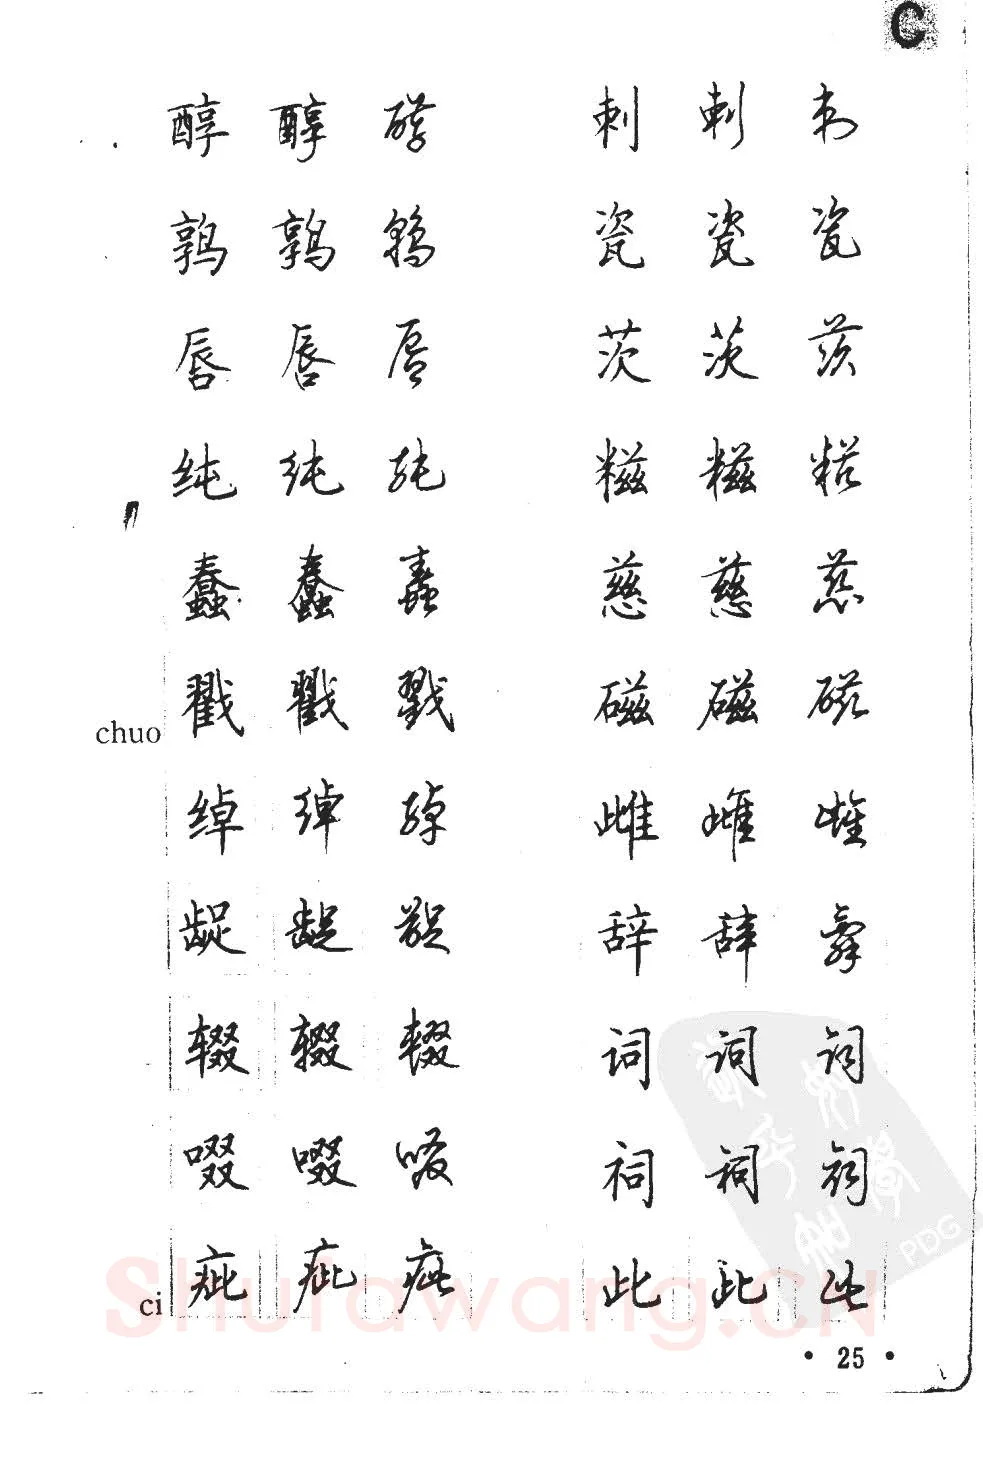 C
醇 醇 醇 刺 刺 刺
鹑 鹑 鹑 瓷 瓷 瓷
唇 唇 唇 茨 茨 茨
纯 纯 纯 糍 糍 糍
蠢 蠢 蠢 慈 慈 慈
chuo 戳 戳 戳 磁 磁 磁
绰 绰 绰 雌 雌 雌
龊 龊 龊 辞 辞 辞
辍 辍 辍 词 词 词
啜 啜 啜 祠 祠 祠
ci 疵 疵 疵 此 此 此
Shufawang.CN
PDG
• 25 •